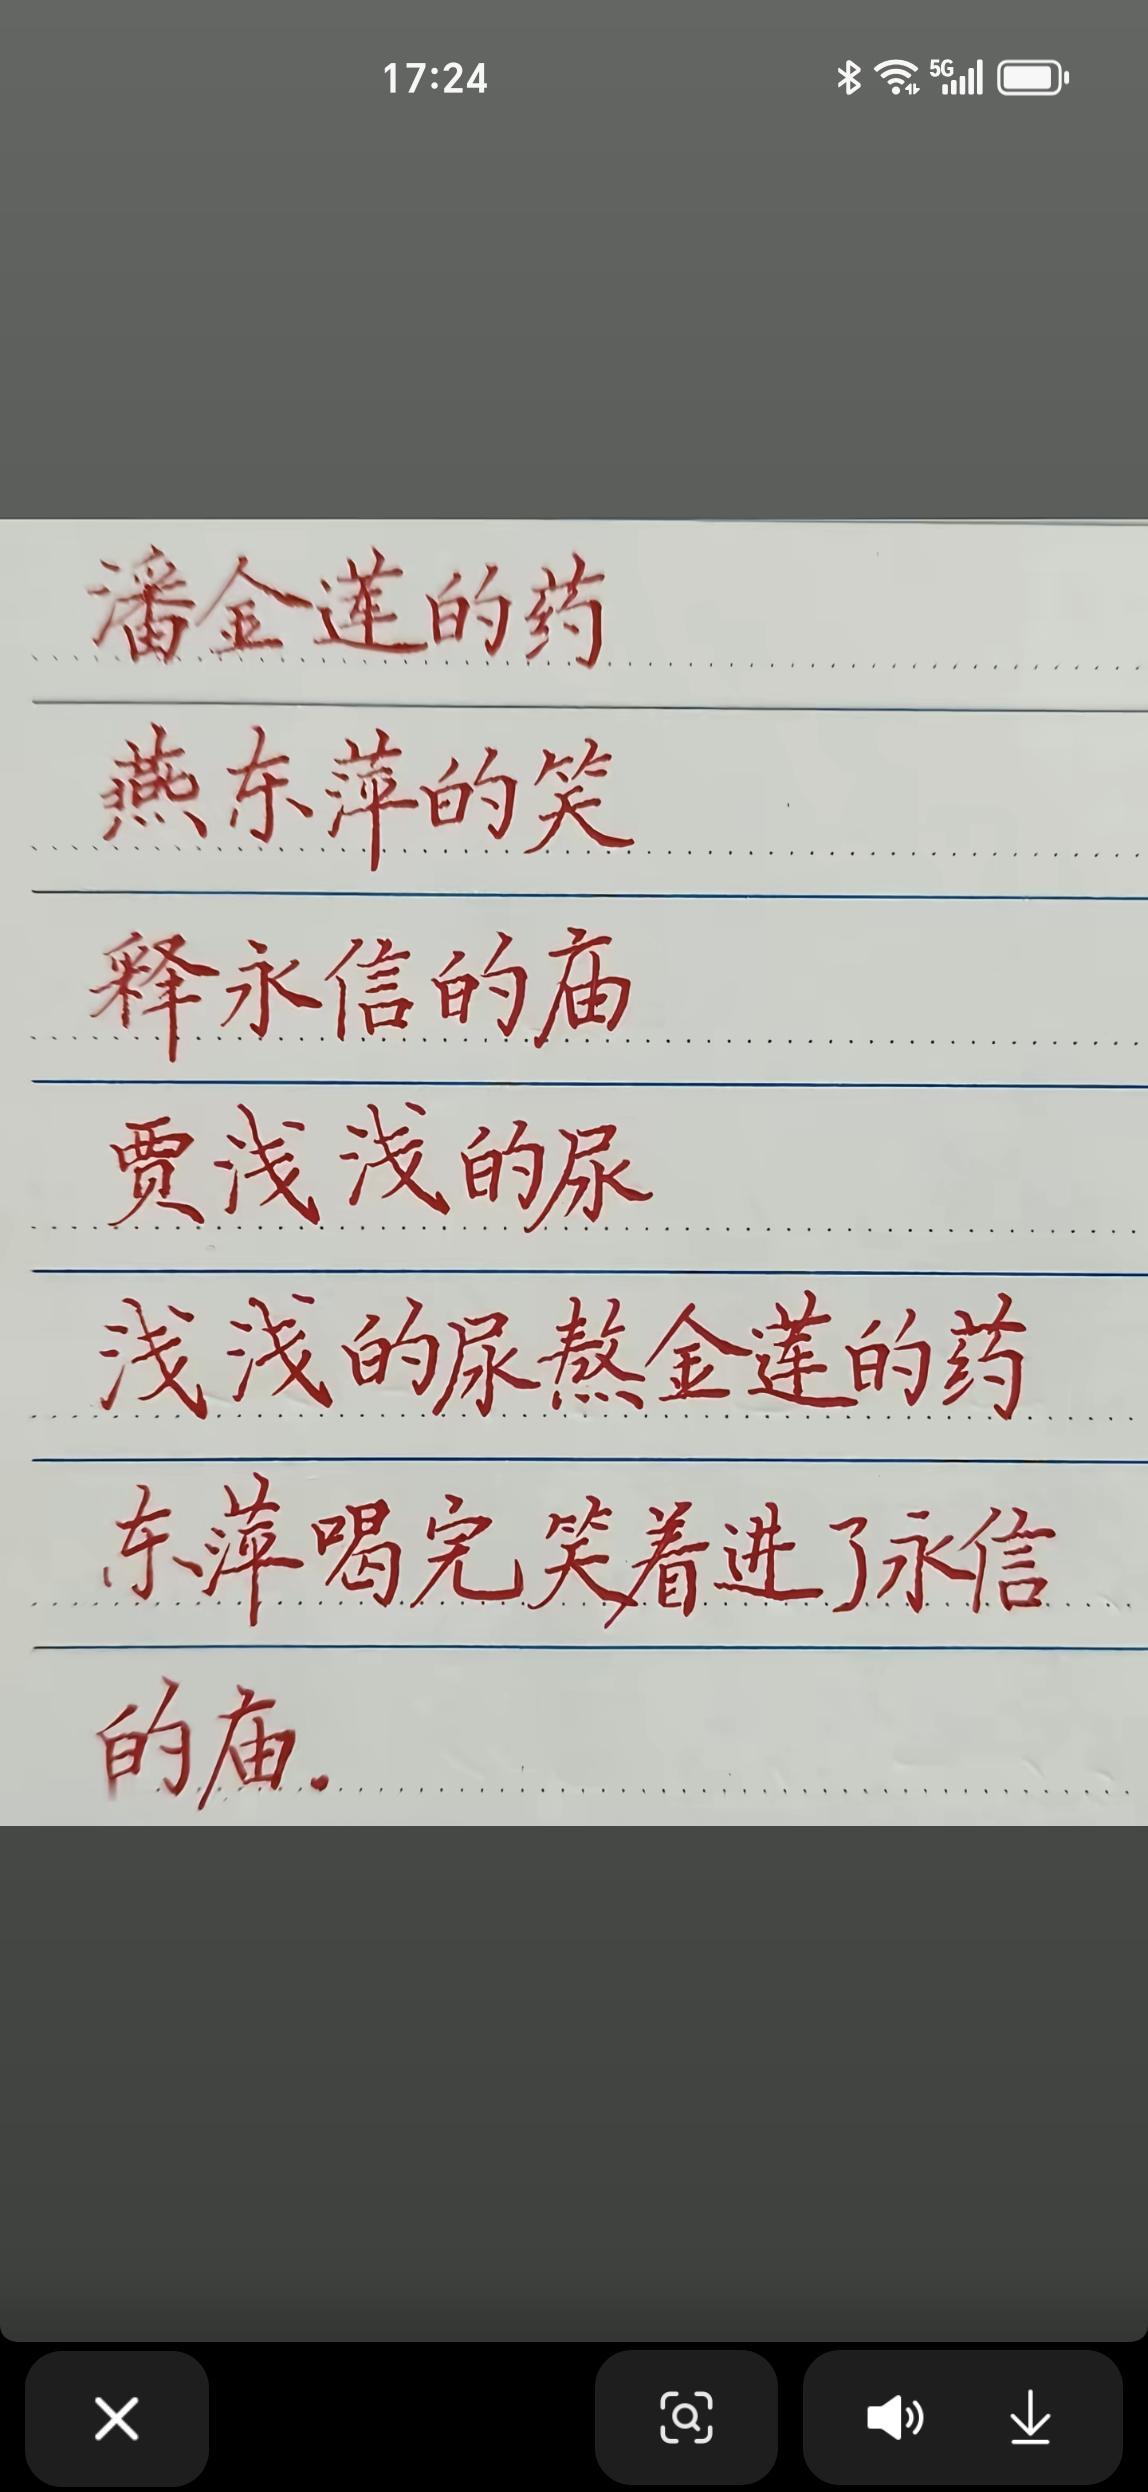 17:24
5G
潘金莲的药
燕东萍的笑
释永信的庙
贾浅浅的尿
浅浅的尿熬金莲的药
东萍喝完笑着进了永信
的庙.